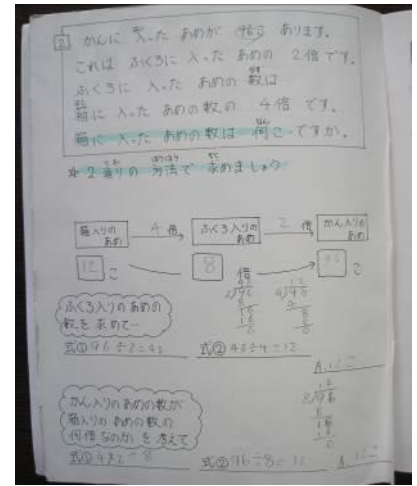 2 かんに 入った あめが 96こ あります。
これは ふくろに 入った あめの 2倍です。
ふくろに 入った あめの 数は
箱に 入った あめの数の 4倍 です。
箱に 入った あめの数は 何こ ですか。
☆ 2通りの 方法で 求めましょう
箱入りの あめ 4倍 ふくろ入りの あめ 2倍 かん入りの あめ
12こ 8倍 96こ
ふくろ入りの あめの
数を 求めて…
式① 96÷2=48
式② 48÷4=12
A. 12こ
かん入りの あめの数が
箱入りの あめの数の
何倍なのか を 考えて
式① 4×2=8
式② 96÷8=12
A. 12こ